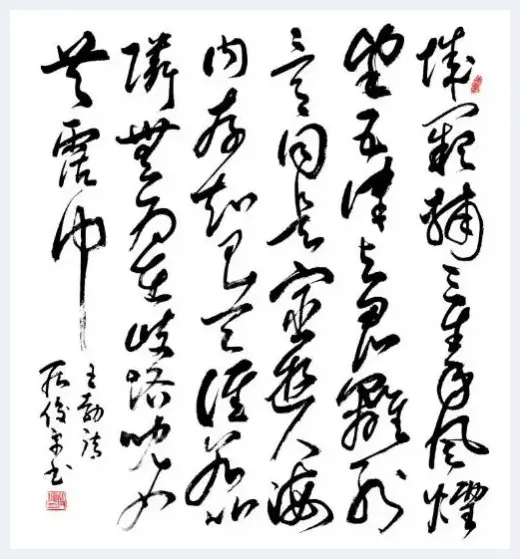 城闕輔三秦風煙
望五津与君離別
意同是宦遊人海
内存知己天涯若比
隣無為在歧路児女
共霑巾
王勃詩
俊书